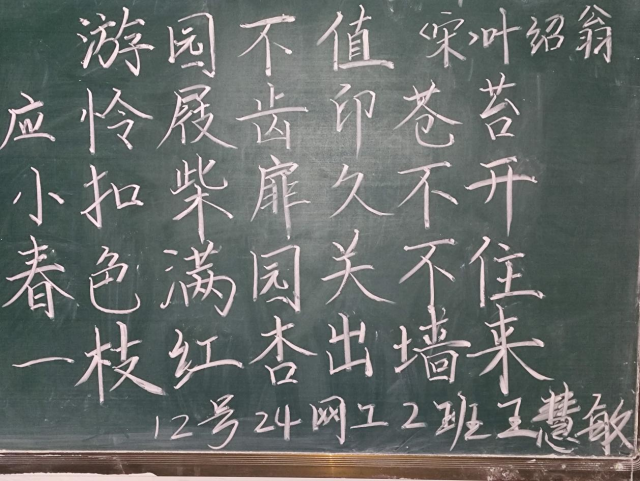 游园不值 《宋》叶绍翁
应怜屐齿印苍苔
小扣柴扉久不开
春色满园关不住
一枝红杏出墙来
12号24网工2班王慧敏